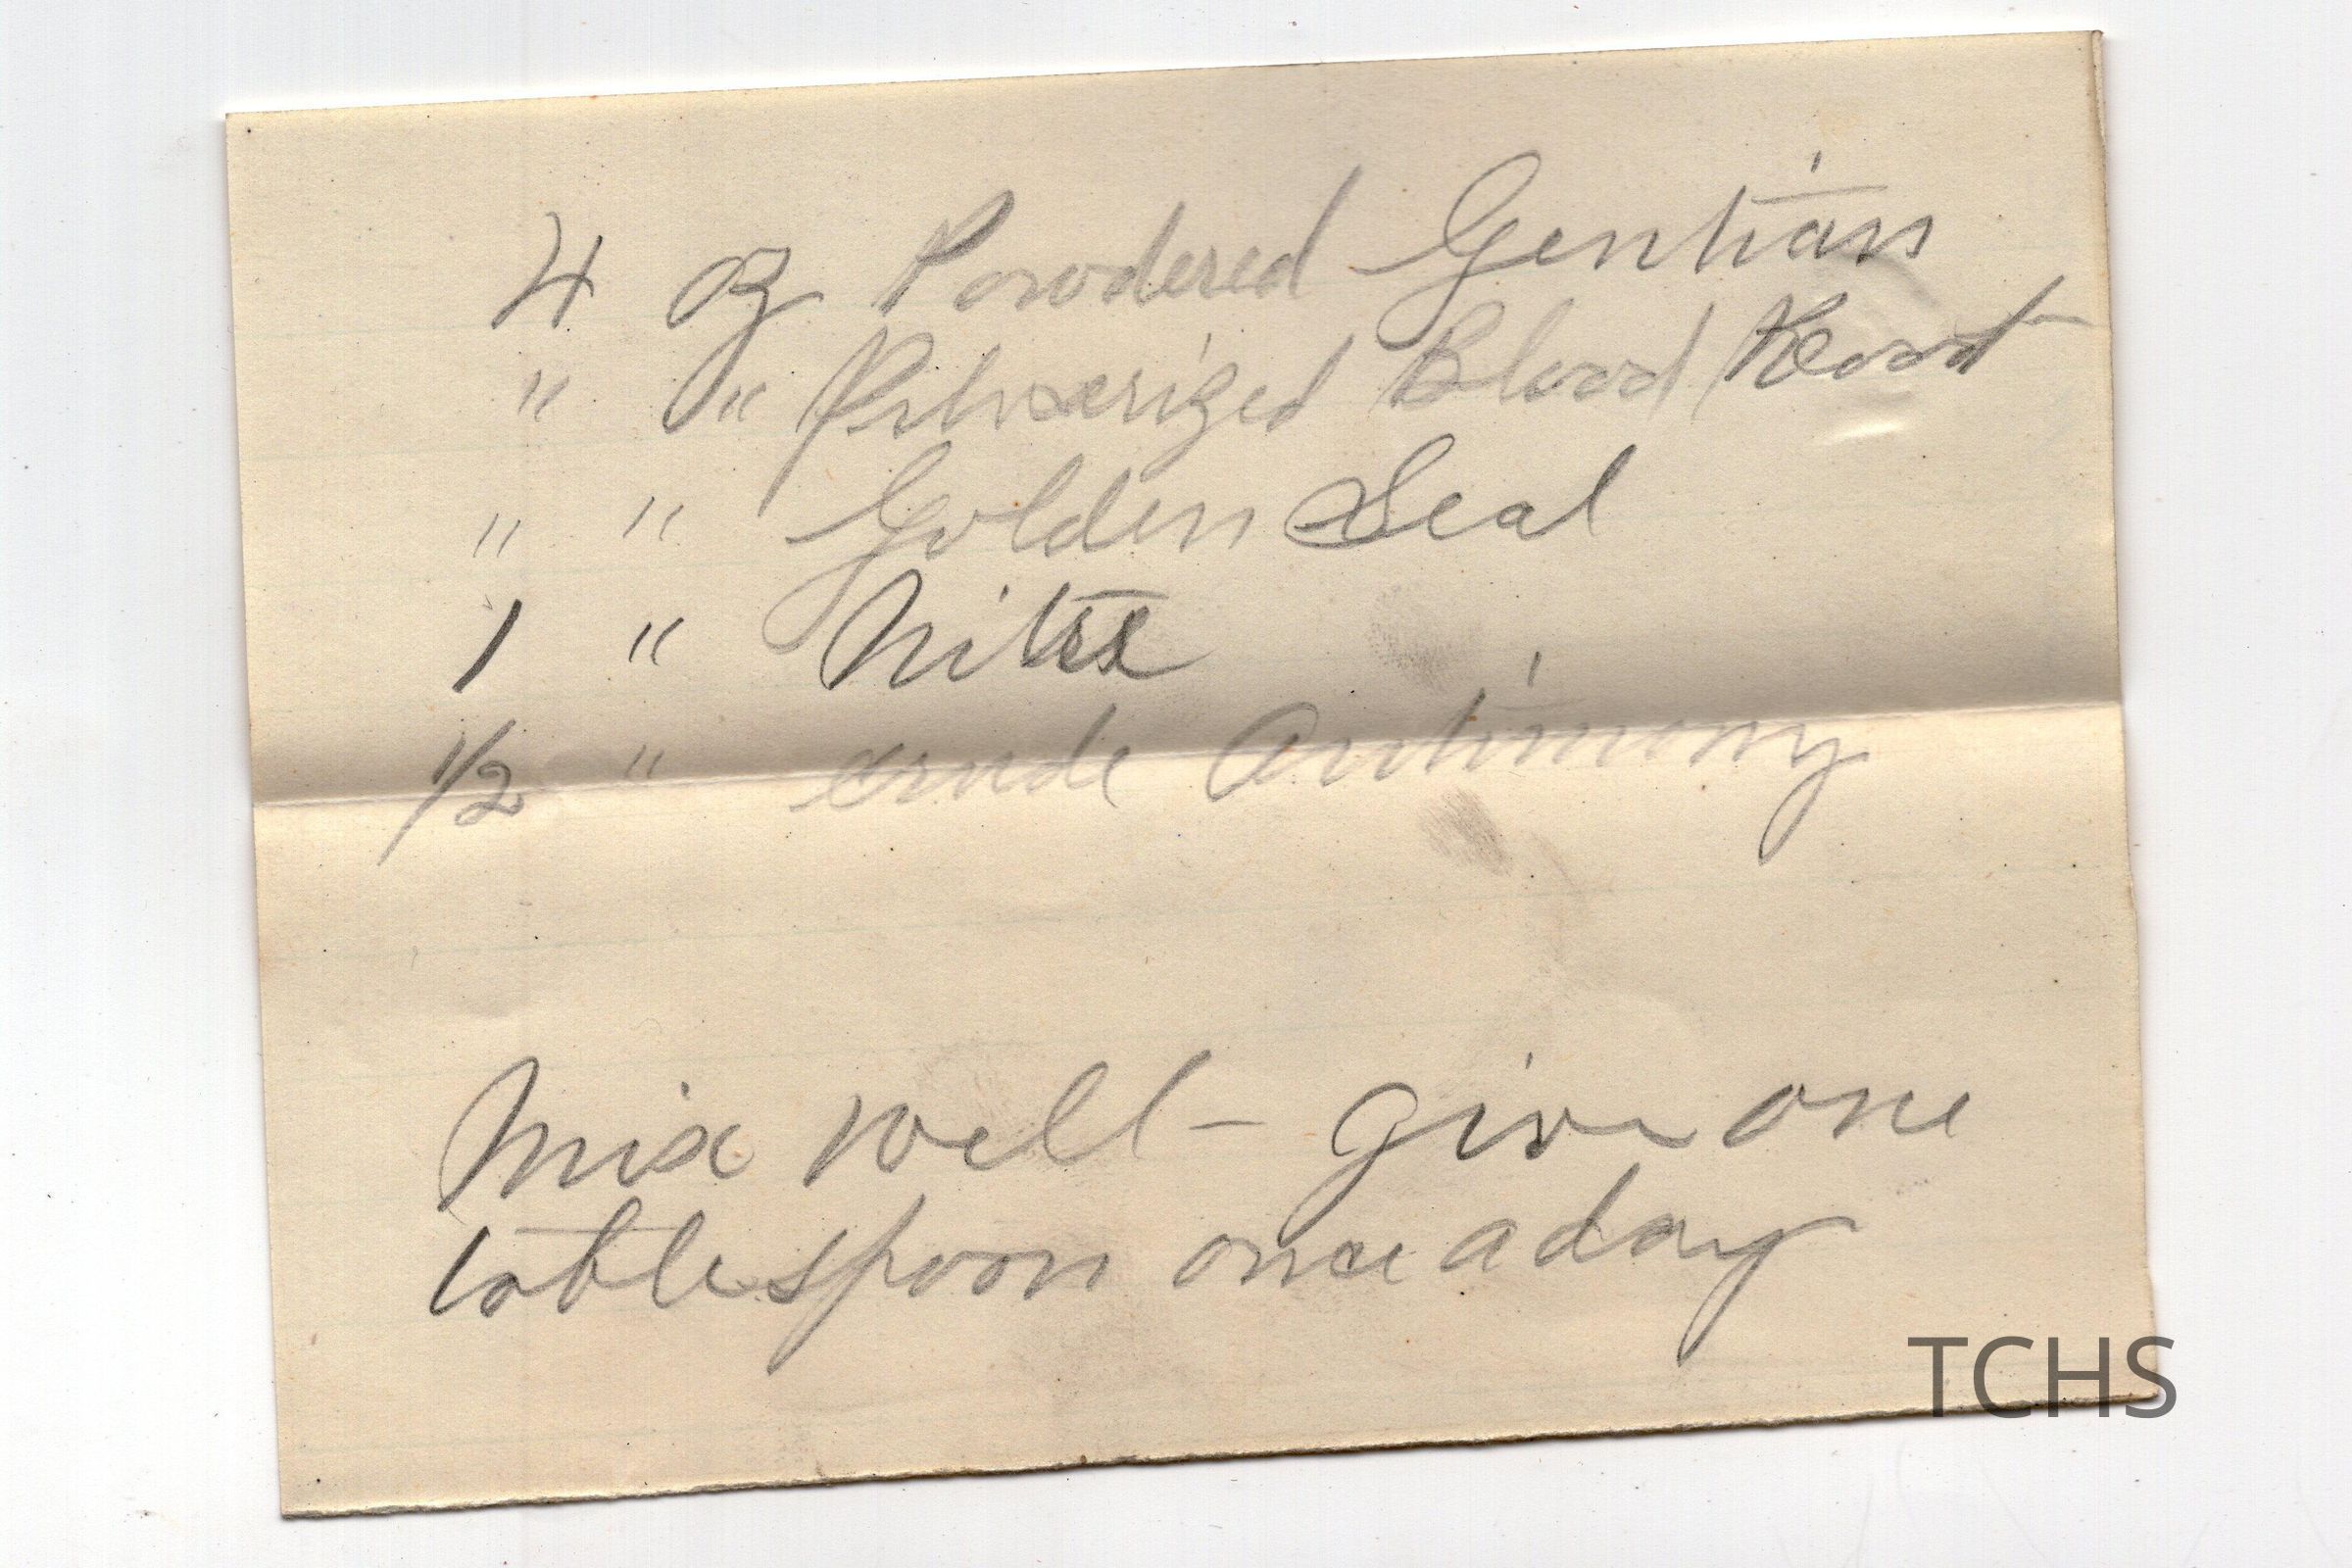 4 oz Powdered Gentian
" " Pulverized Blood Root
" " Golden Seal
1 " Nitre
1/2 " crude Antimony
Mix well - Give one
tablespoon once a day
TCHS